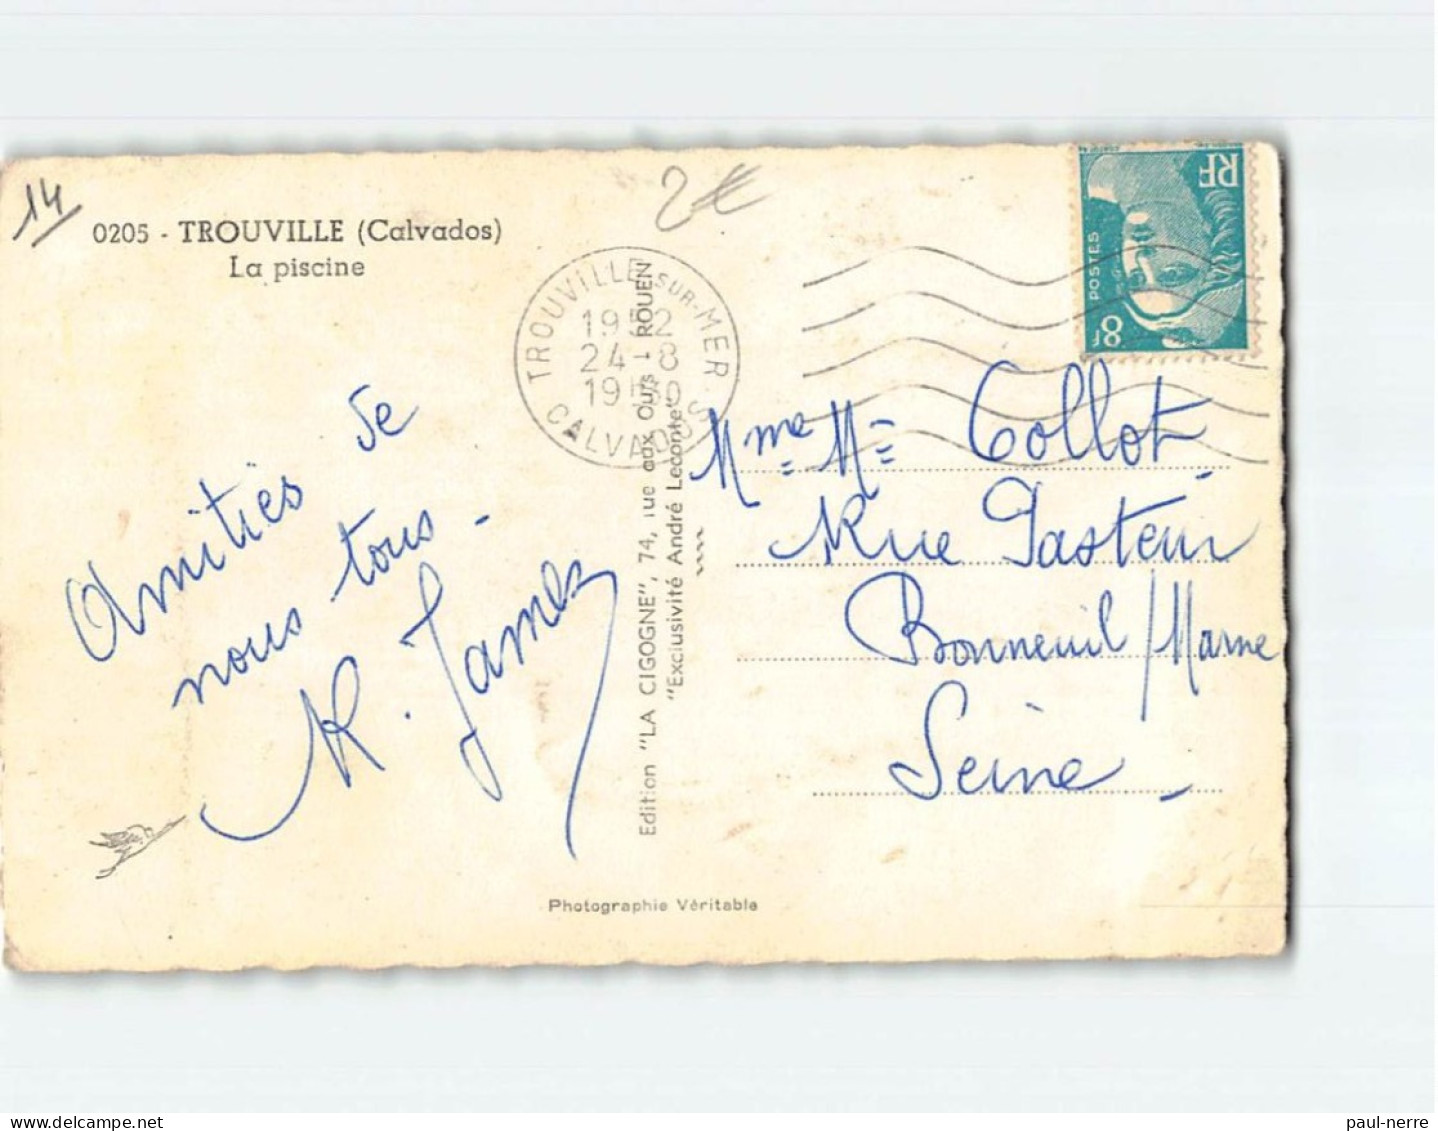 14
2€
0205 - TROUVILLE (Calvados)
La piscine
TROUVILLE SUR-MER
1952
24-8
19H30
CALVADOS
RF
POSTES
8F
Amitiés de
nous tous -
Edition "LA CIGOGNE", 74, rue aux Ours - ROUEN
"Exclusivité André Leconte"
Mme Mr Collot
Rue Pasteur
Bonneuil/Marne
Seine -
Photographie Véritable
paul-nerre